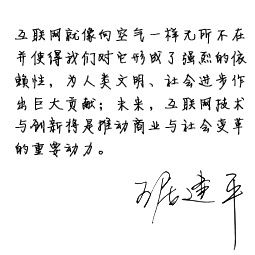 互联网就像向空气一样无所不在
并使得我们对它形成了强烈的依
赖性，为人类文明、社会进步作
出巨大贡献；未来，互联网技术
与创新将是推动商业与社会变革
的重要动力。